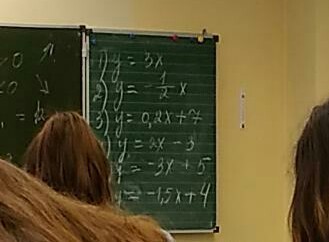 >0 ↗
<0 ↘
1) y = 3x
2) y = -1/2 x
3) y = 0,2x + 7
) y = 2x - 3
y = -3x + 5
y = -1,5x + 4